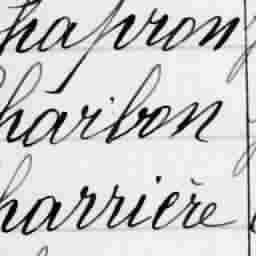 hapron
harbon
harrière